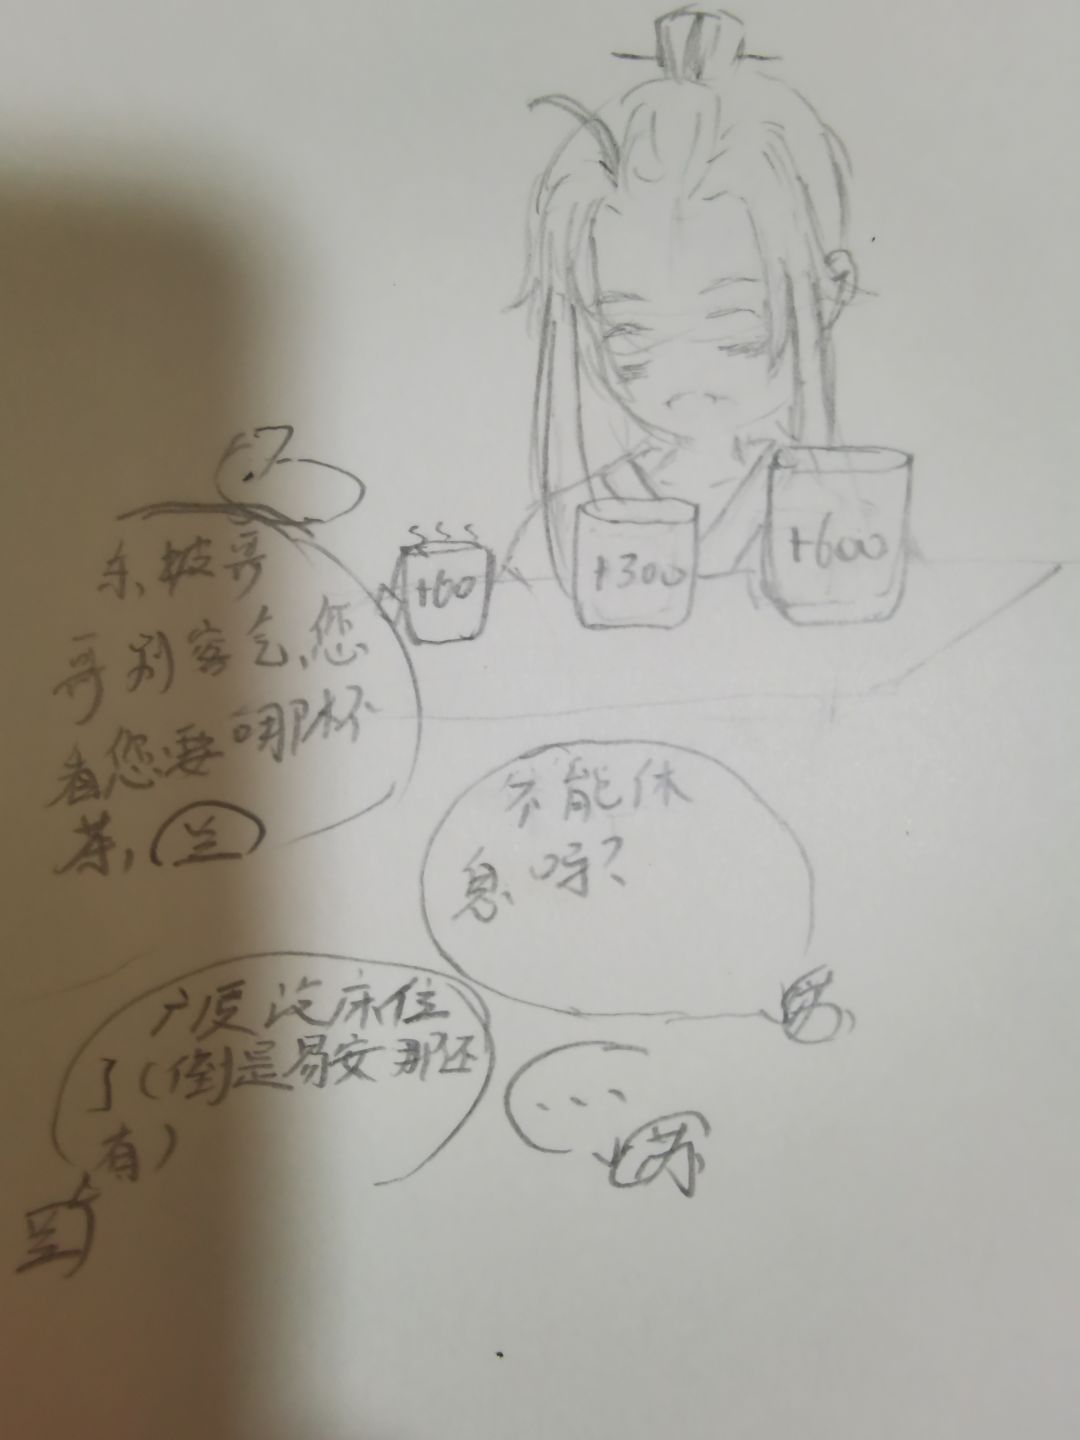 +60
+300
+600
东坡哥
哥别客气,您
看您要哪杯
茶,
兰
不能休
息呀?
苏
没床位
了(倒是易安那还
有)
兰
...
苏